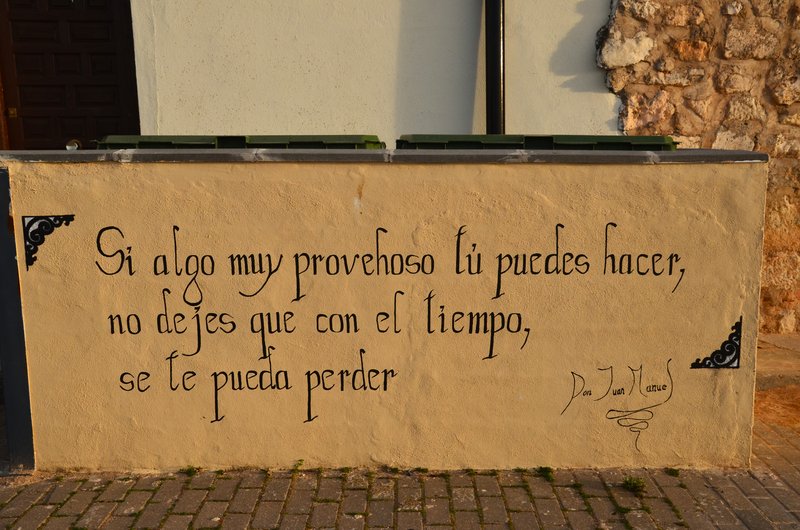 Si algo muy provehoso tú puedes hacer,
no dejes que con el tiempo,
se te pueda perder
Don Juan Manuel